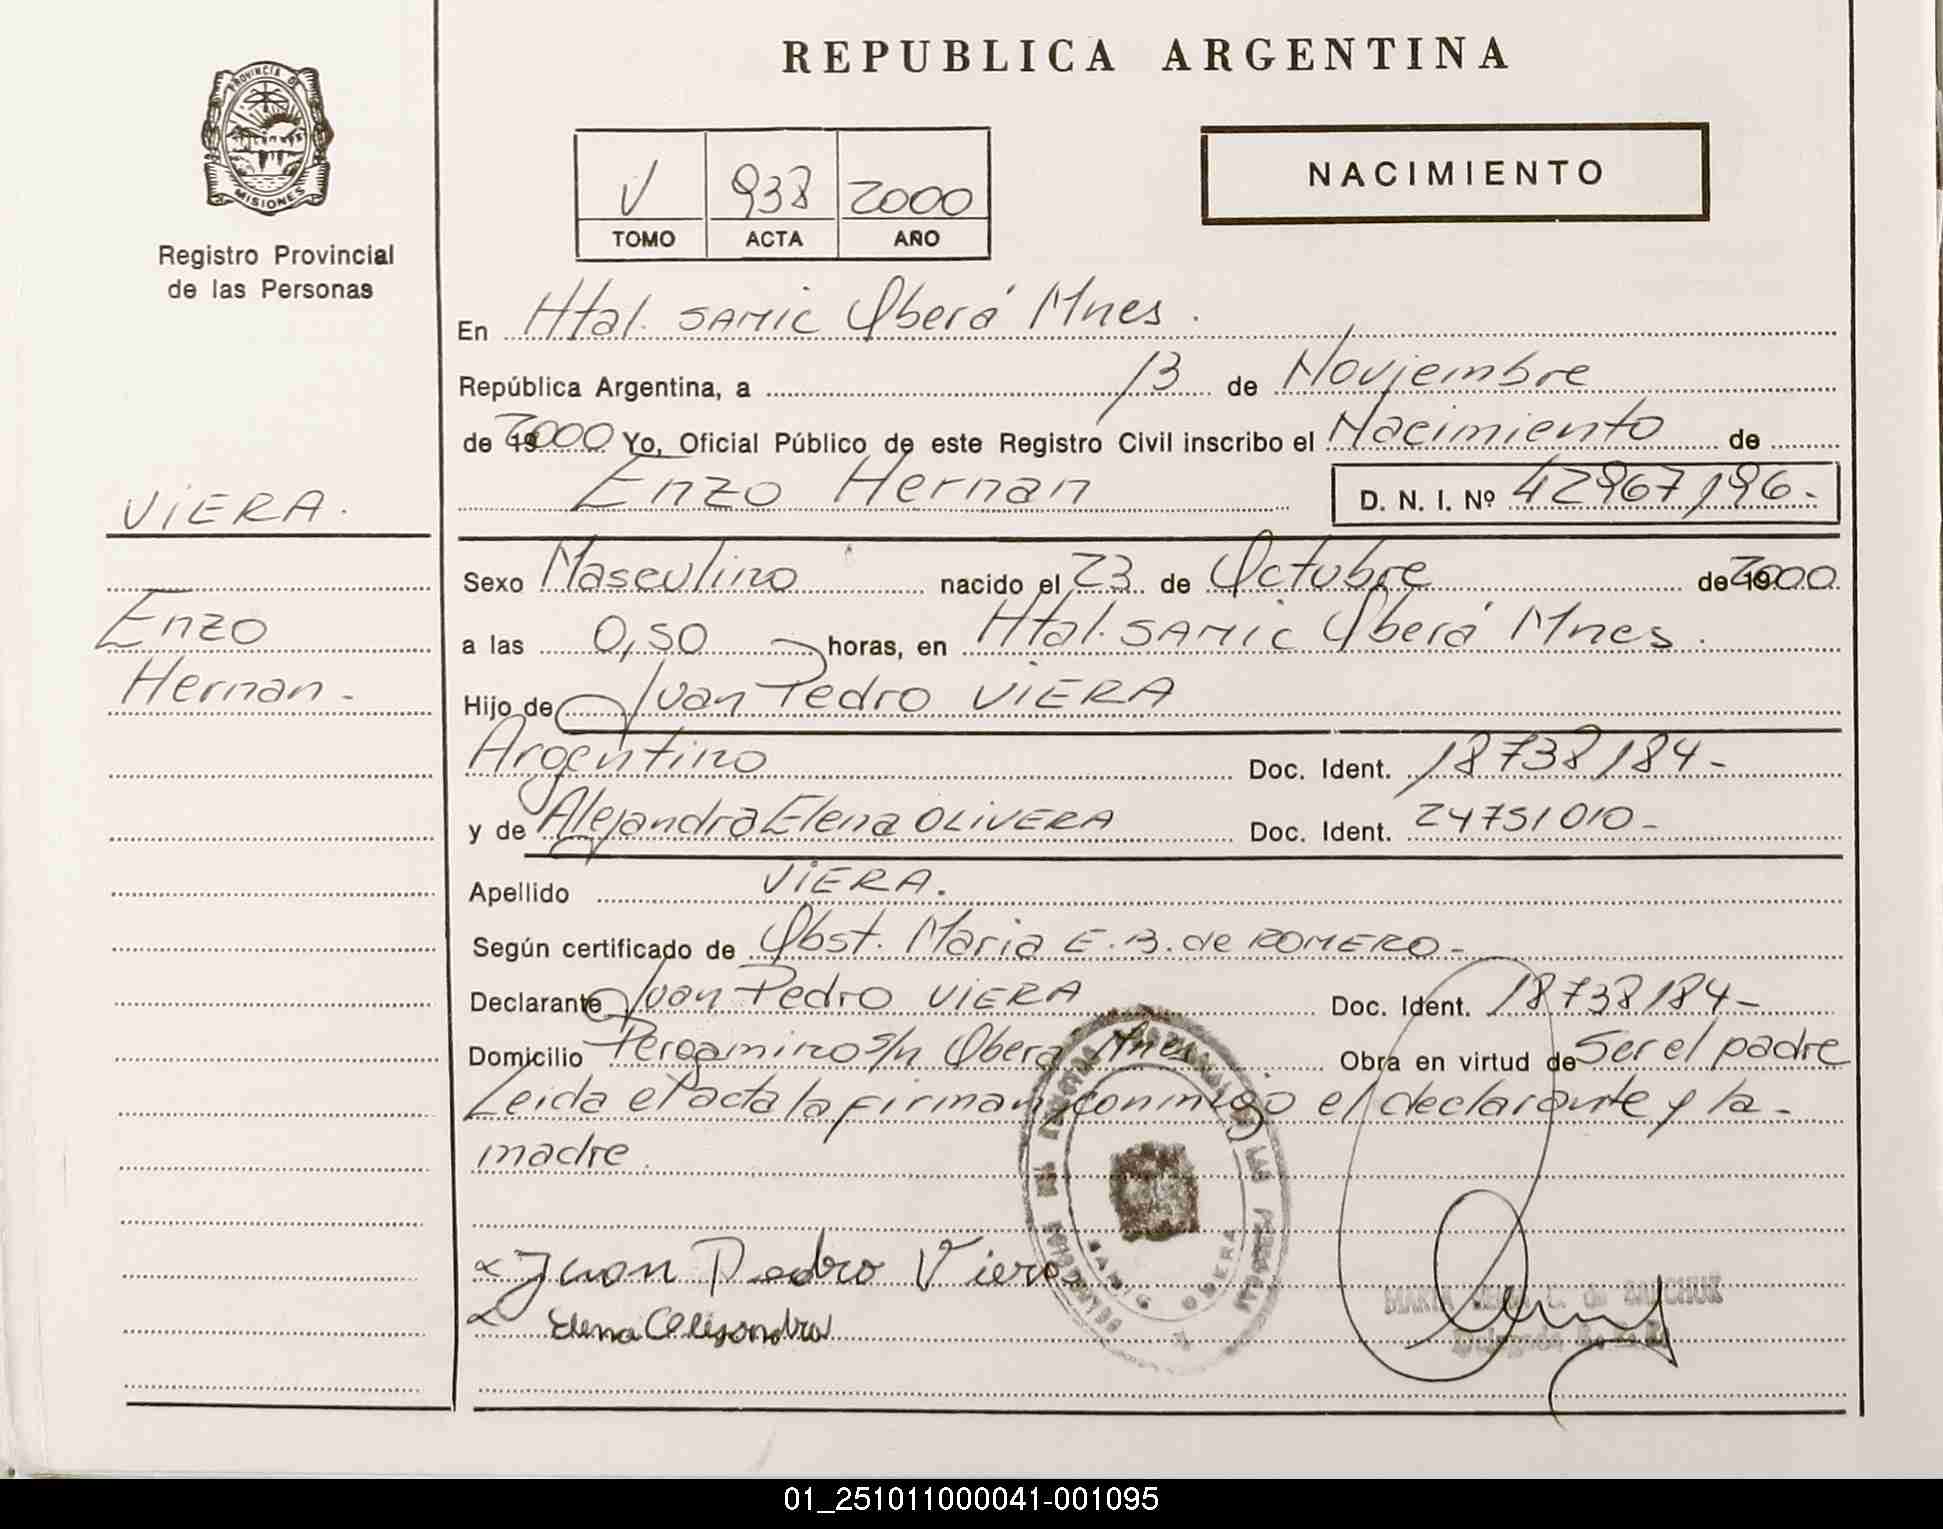 REPUBLICA ARGENTINA
PROVINCIA DE
MISIONES
Registro Provincial
de las Personas
V 938 2000
TOMO ACTA AÑO
NACIMIENTO
En Htal. SAMIC Oberá Mnes.
República Argentina, a 13 de Noviembre
de 2000 Yo, Oficial Público de este Registro Civil inscribo el Nacimiento de
Enzo Hernan D. N. I. Nº 42967196-
VIERA.
Enzo
Hernan-
Sexo Masculino nacido el 23 de Octubre de 2000
a las 0,50 horas, en Htal. SAMIC Oberá Mnes.
Hijo de Juan Pedro VIERA
Argentino Doc. Ident. 18738184-
y de Alejandra Elena OLIVERA Doc. Ident. 24751010-
Apellido VIERA.
Según certificado de Obst. Maria E. B. de ROMERO-
Declarante Juan Pedro VIERA Doc. Ident. 18738184-
Domicilio Pergamino s/n Oberá Mnes Obra en virtud de Ser el padre
Leida el acta la firman conmigo el declarante y la-
madre.
Juan Pedro Viera
Elena Alejandra
SAMIC OBERA
01_251011000041-001095